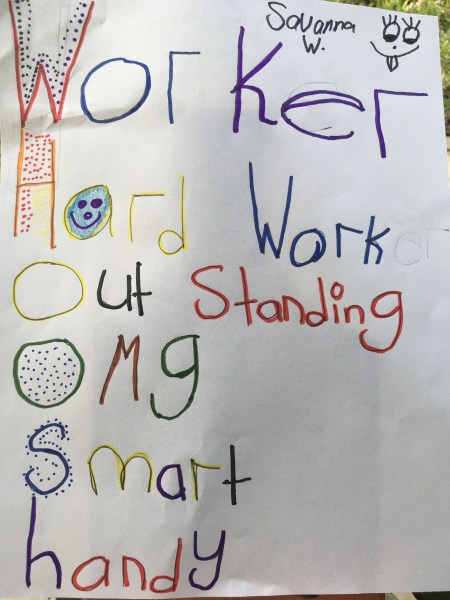 Savanna
W.
Worker
Hard Worker
Out Standing
OMg
Smart
handy